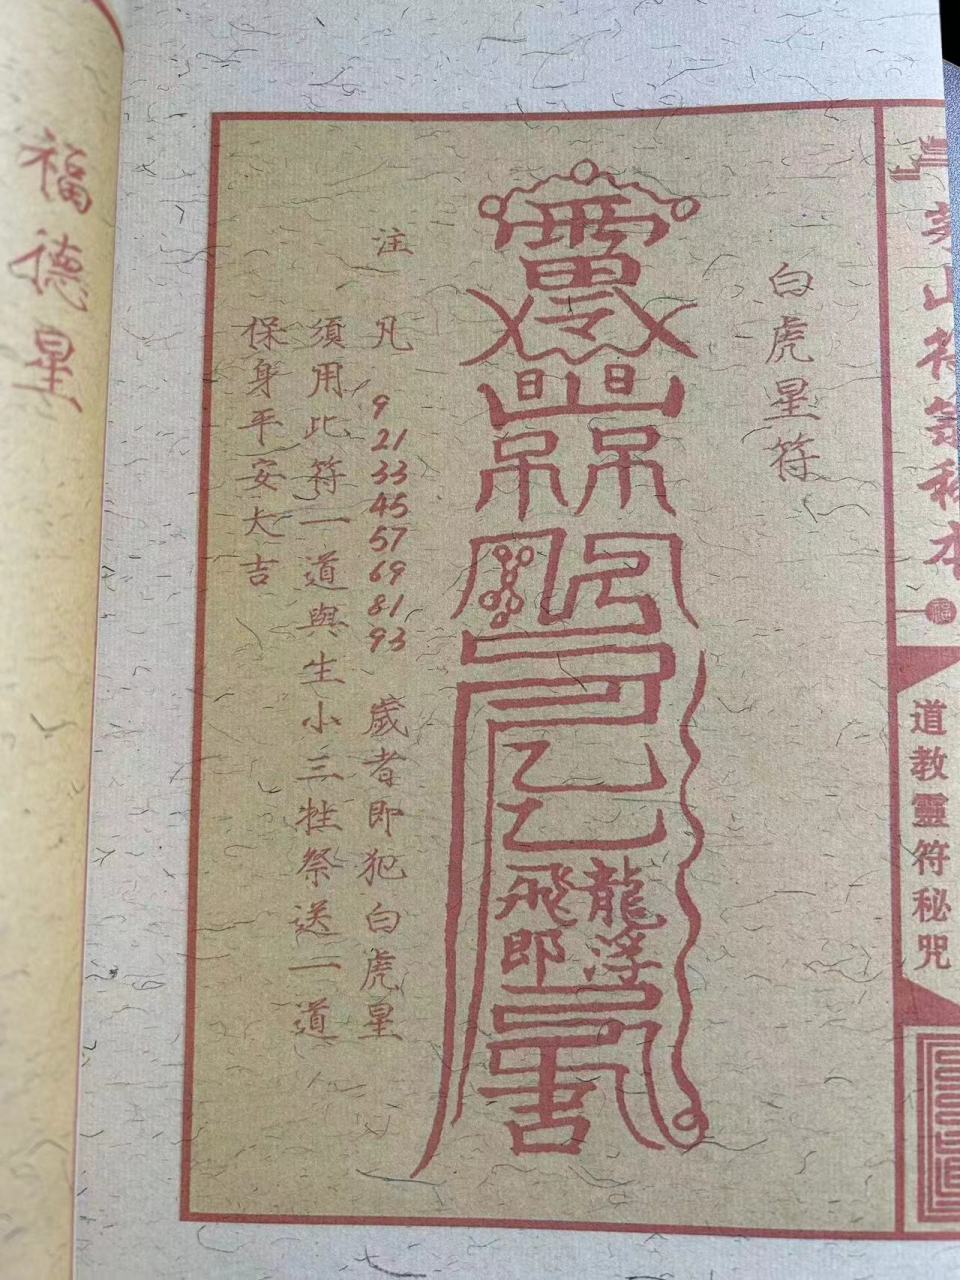 茅山符箓秘本
福
道教靈符秘咒
白虎星符
龍浮
飛即
注 凡 9 21 33 45 57 69 81 93 歲者即犯白虎星
須用比符一道與生小三牲祭送一道
保身平安大吉
福德星